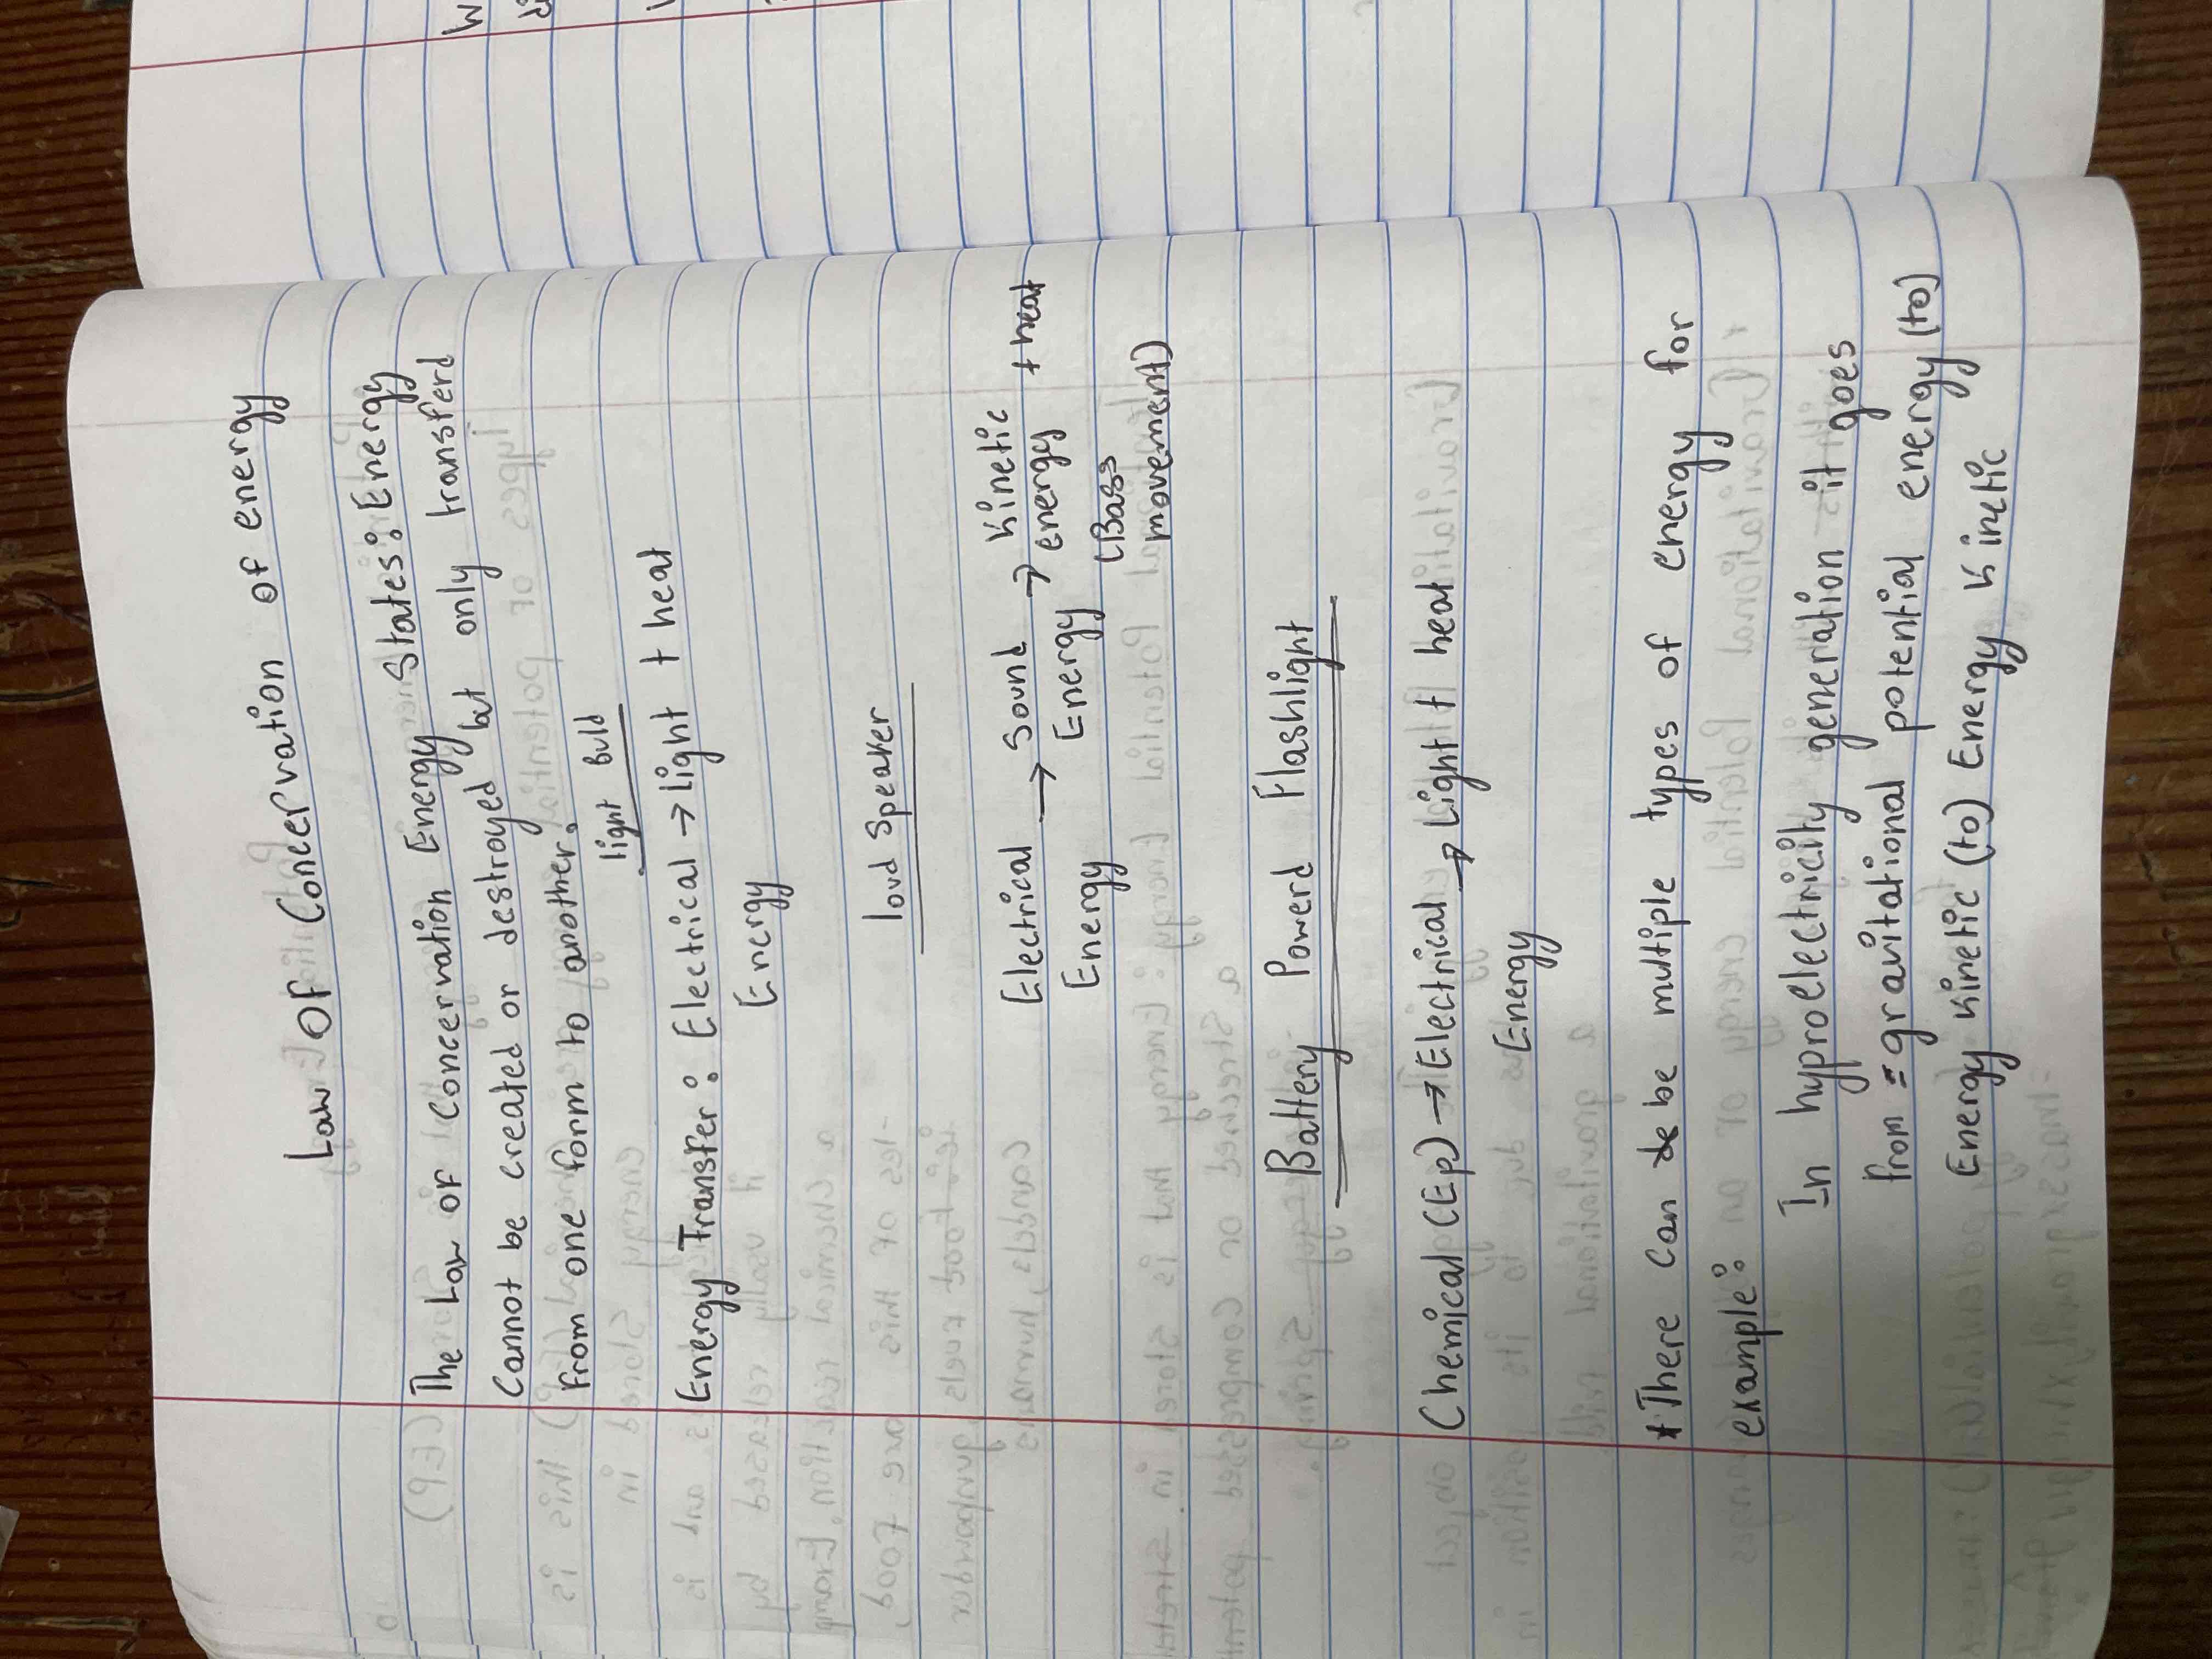 Law Of Concervation of energy
The Law of Concervation Energy States: Energy
Cannot be created or destroyed but only transferd
from one form to another.
light Buld
Energy Transfer: Electrical → light + heat
Energy
loud Speaker
Electrical → Sound → Kinetic + heat
Energy Energy energy
(Bass
movement)
Battery Powerd Flashlight
Chemical (Ep) → Electrical → Light + heat
Energy
*There can be multiple types of energy for
example:
In hyproelectricity generation it goes
from = gravitational potential energy (to)
Energy Kinetic (to) Energy Kinetic